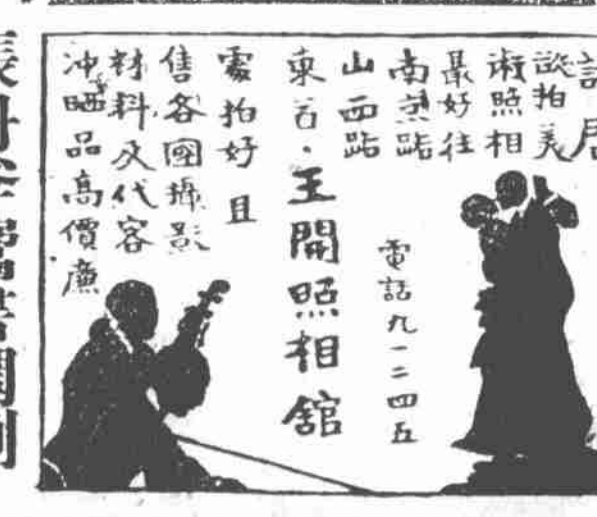 諸君
欲拍美
術照相
最好往
南京路
山西路
東首·王開照相舘
電話九一二四五
電拍好且
售各國攝影
材料及代客
冲晒品高價廉